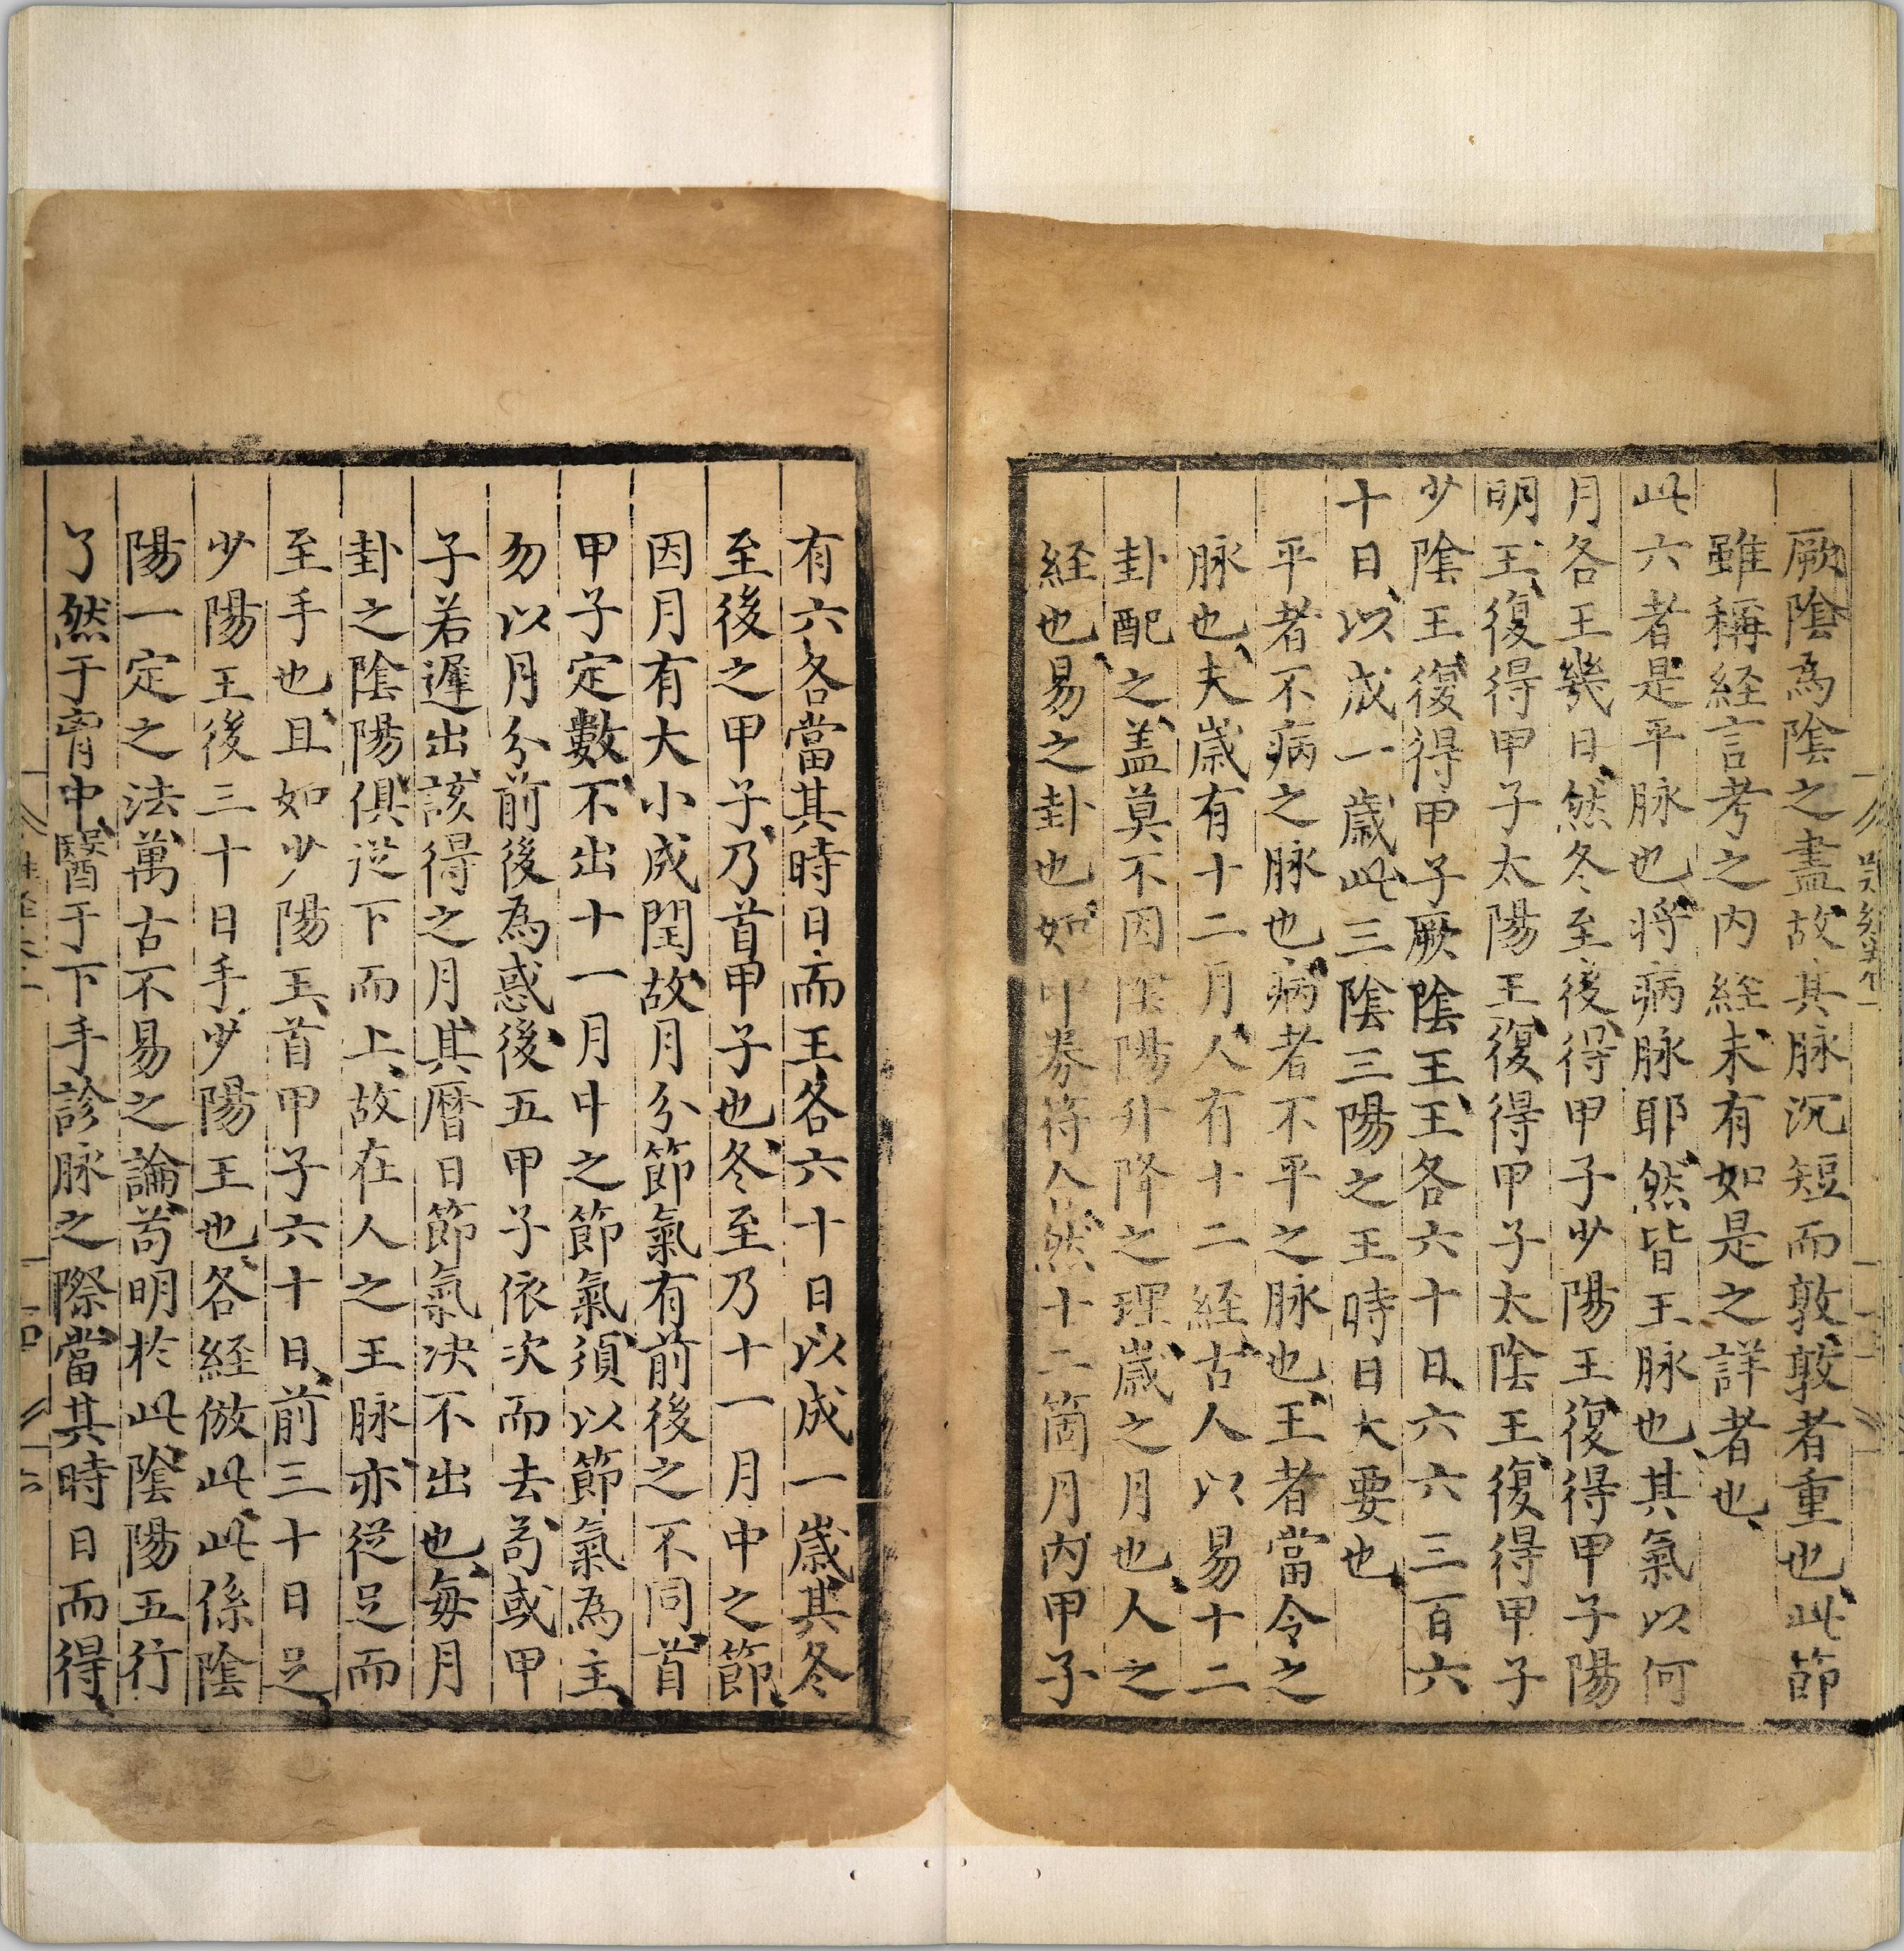 厥陰為陰之盡故其脉沉短而敦敦者重也此節
雖稱経言考之内経未有如是之詳者也
此六者是平脉也将病脉耶然皆王脉也其氣以何
月各王幾日然冬至後得甲子少陽王復得甲子陽
明王復得甲子太陽王復得甲子太陰王復得甲子
少陰王復得甲子厥陰王王各六十日六六三百六
十日以成一歲此三陰三陽之王時日大要也
平者不病之脉也病者不平之脉也王者當令之
脉也夫歲有十二月人有十二経古人以易十二
卦配之盖莫不因陰陽升降之理歲之月也人之
経也易之卦也如印券符人然十二箇月内甲子
有六各當其時日而王各六十日以成一歲其冬
至後之甲子乃首甲子也冬至乃十一月中之節
因月有大小成閏故月分節氣有前後之不同首
甲子定數不出十一月中之節氣須以節氣為主
勿以月分前後為惑後五甲子依次而去苟或甲
子若遲出該得之月其曆日節氣决不出也每月
卦之陰陽俱从下而上故在人之王脉亦從足而
至手也且如少陽王首甲子六十日前三十日足
少陽王後三十日手少陽王也各経倣此此係陰
陽一定之法萬古不易之論苟明於此陰陽五行
了然于胷中醫于下手診脉之際當其時日而得